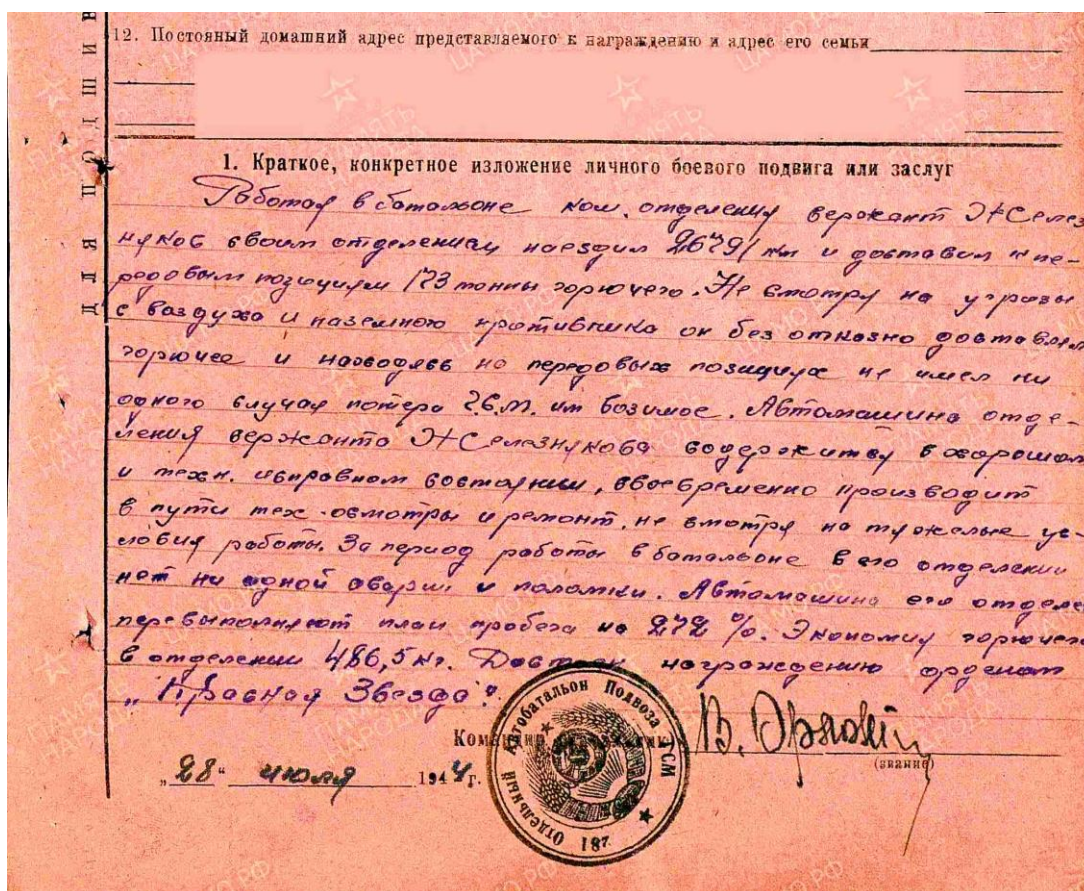 12. Постоянный домашний адрес представляемого к награждению и адрес его семьи
ДЛЯ ПОДШИВ
1. Краткое, конкретное изложение личного боевого подвига или заслуг
Работая в батальоне ком. отделения сержант Желез
няков своим отделением наездил 26791 км и доставил к пе-
редовым позициям 173 тонны горючего. Не смотря на угрозы
с воздуха и наземного противника он без отказно доставлял
горючее и находясь на передовых позициях не имел ни
одного случая потерь им возимое. Автомашина отде-
ления сержанта Железнякова содержится в хорошом
и техн. исправном состоянии, своевременно производит
в пути тех. осмотры и ремонт, не смотря на тяжелые ус-
ловия работы. За период работы в батальоне в его отделении
нет ни одной аварии и поломки. Автомашина его отделе
перевыполняют план пробега на 272 %. Экономия горючего
в отделении 486,5 кг. Достоин награждению орденом
"Красная Звезда".
Командир
(звание)
"28" июля 1944г.
Отдельный Автобатальон Подвоза ГСМ
187
ПАМЯТЬ НАРОДА
ЦАМО.РФ